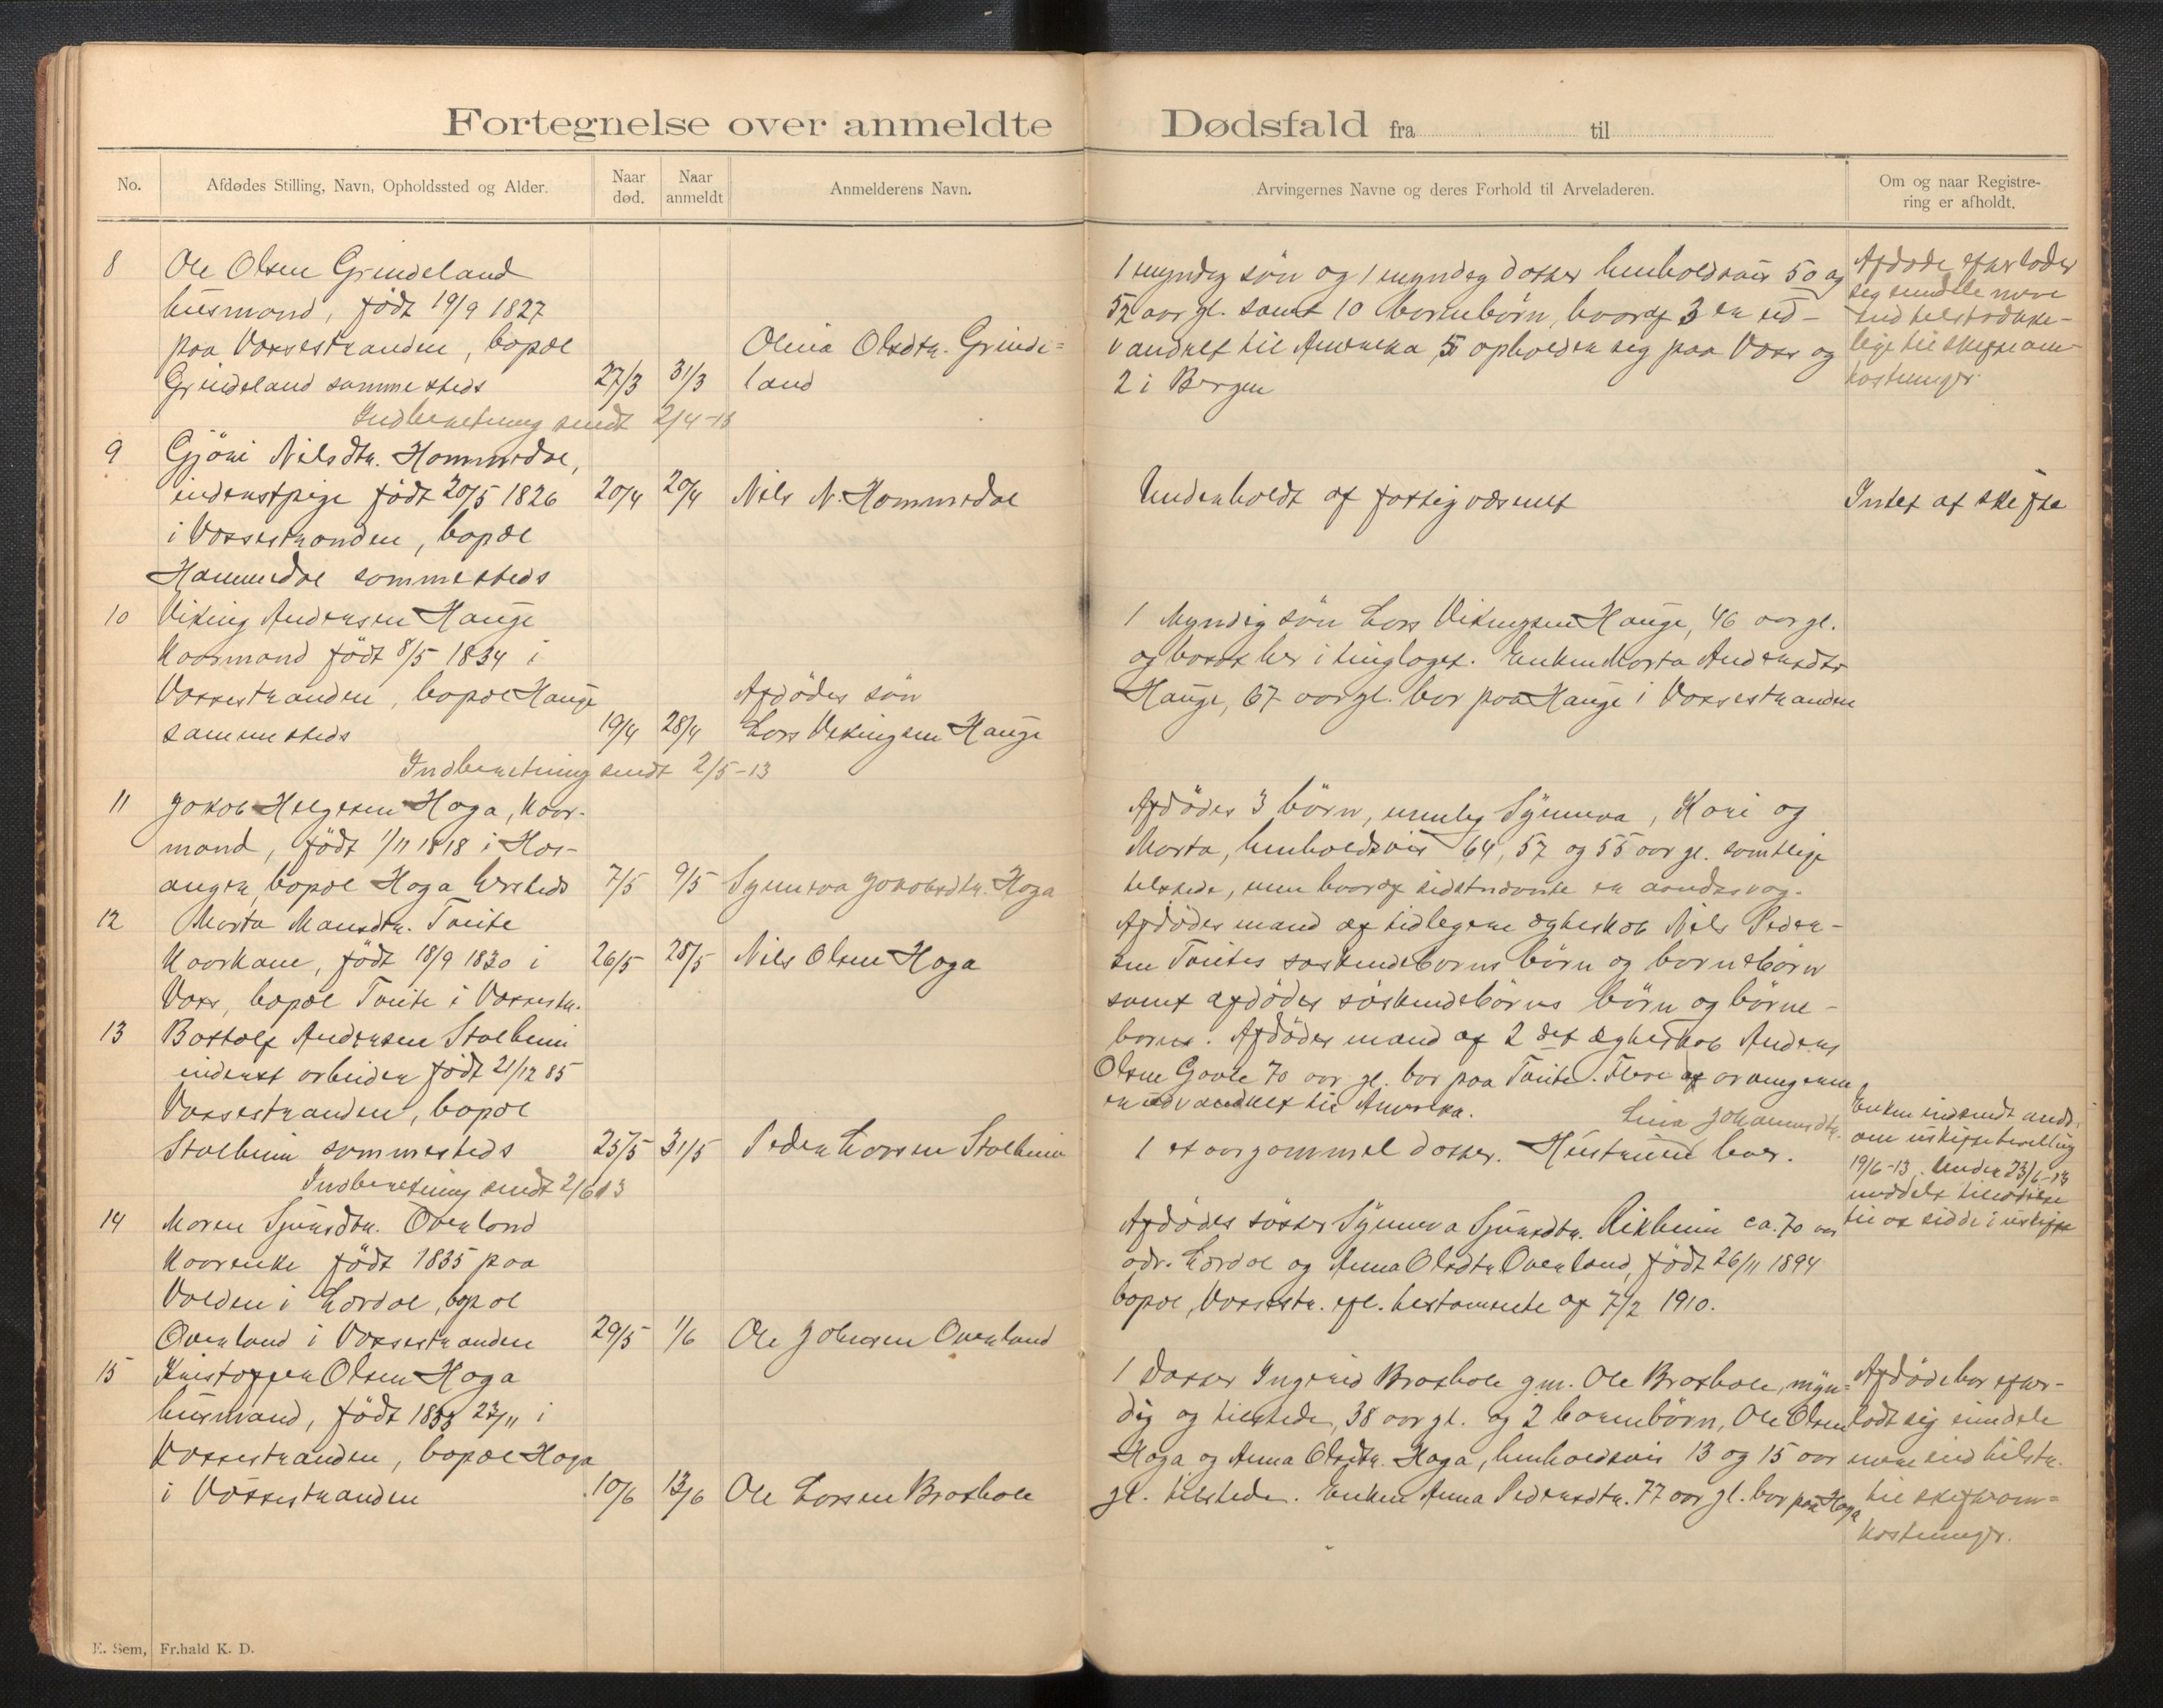 Fortegnelse over anmeldte Dødsfald fra til
No.
Afdødes Stilling, Navn, Opholdssted og Alder.
Naar død.
Naar anmeldt
Anmelderens Navn.
Arvingernes Navne og deres Forhold til Arveladeren.
Om og naar Registre-
ring er afholdt.
8 Ole Olsen Grindeland
husmand, født 19/9 1827
paa Vossestranden, bopæl
Grindeland sammesteds 27/3 31/3
Olina Olsdtr. Grinde=
land
Indberetning sendt 2/4-13
1 myndig søn og 1 myndig datter henholdsvis 50 og
52 aar gl. samt 10 barnebørn, hvoraf 3 er ud-
vandret til Amerika 5 opholder sig paa Voss og
2 i Bergen
Afdøde efterloder
sig mindre mere
end tilstrække-
lige til skifteom-
kostninger.
9 Gjøri Nilsdtr. Hommedal,
inderstpige født 20/5 1826 20/4 20/4 Nils N. Hommedal
i Vossestranden, bopæl
Hommedal sammesteds
Underholdt af fattigvæsenet
Intet at skifte
10 Viking Andersen Hauge
Kaarmand født 8/5 1834 i
Vossestranden, bopæl Hauge
sammesteds 19/4 28/4
Afdødes søn
Lars Vikingsen Hauge
Indberetning sendt 2/5-13
1 Myndig søn Lars Vikingsen Hauge, 46 aar gl.
og bosat her i tinglaget. Enken Marta Andersdtr
Hauge, 67 aar gl. bor paa Hauge i Vossestranden
11 Jakob Helgesen Haga, Kaar-
mand, født 1/11 1818 i Hos-
anger, bopæl Haga hersteds 7/5 9/5 Synneva Jakobsdtr. Haga
Afdødes 3 børn, nemlig Synneva, Kari og
Marta, henholdsvis 64, 57 og 55 aar gl. samtlige
tilstede, men hvoraf sidstnævnte er aandssvag.
12 Marta Mansdtr. Tvite
Kaarkone, født 18/9 1830 i 26/5 28/5 Nils Olsen Haga
Voss, bopæl Tvite i Vossestr.
Afdødes mand af tidligere ægteskab Nils Peder-
sen Tvites søskendebørns børn og barnebørn
samt afdødes søskendebørns børn og børne-
børn. Afdødes mand af 2det ægteskab Anders
Olsen Gavle 70 aar gl. bor paa Tvite. Flere af arvingerne
er udvandret til Amerika.
13 Bottolf Andersen Stalheim
inderst arbeider født 21/12 85
Vossestranden, bopæl
Stalheim sammesteds 25/5 31/5 Peder Larsen Stalheim
Indberetning sendt 2/6 13
Lina Johannesdtr.
1 et aar gammel datter. Hustruen lever.
Enken indsendt ands.
om uskiftebevilling
19/6-13. Under 23/6-13
meddelt tilladelse
til at sidde i uskifte
14 Maren Sjursdtr. Øverland
Kaarenke født 1835 paa
Volden i Lærdal, bopæl
Øverland i Vossestranden 29/5 1/6 Ole Johnsen Øverland
Afdødes søster Synneva Sjursdtr. Rikheim ca. 70 aar
adr. Lærdal og Anna Olsdtr Øverland, født 26/11 1894
bopæl, Vossestr. efl. testamente af 7/2 1910.
15 Kristoffer Olsen Haga
husmand, født 1833 23/11 i
Vossestranden, bopæl Haga
i Vossestranden 10/6 13/6 Ole Larsen Brathole
1 Datter Ingerid Brathole gm. Ole Brathole, myn=
dig og tilstede, 38 aar gl. og 2 barnebørn, Ole Olsen
Haga og Anna Olsdtr. Haga, henholdsvis 13 og 15 aar
gl. tilstede. Enken Anna Pedersdtr. 77 aar gl. bor paa Haga
Afdøde har efter-
ladt sig mindre
mere end tilstr.
til skifteom=
kostninger.
E. Sem, Fr.hald K. D.